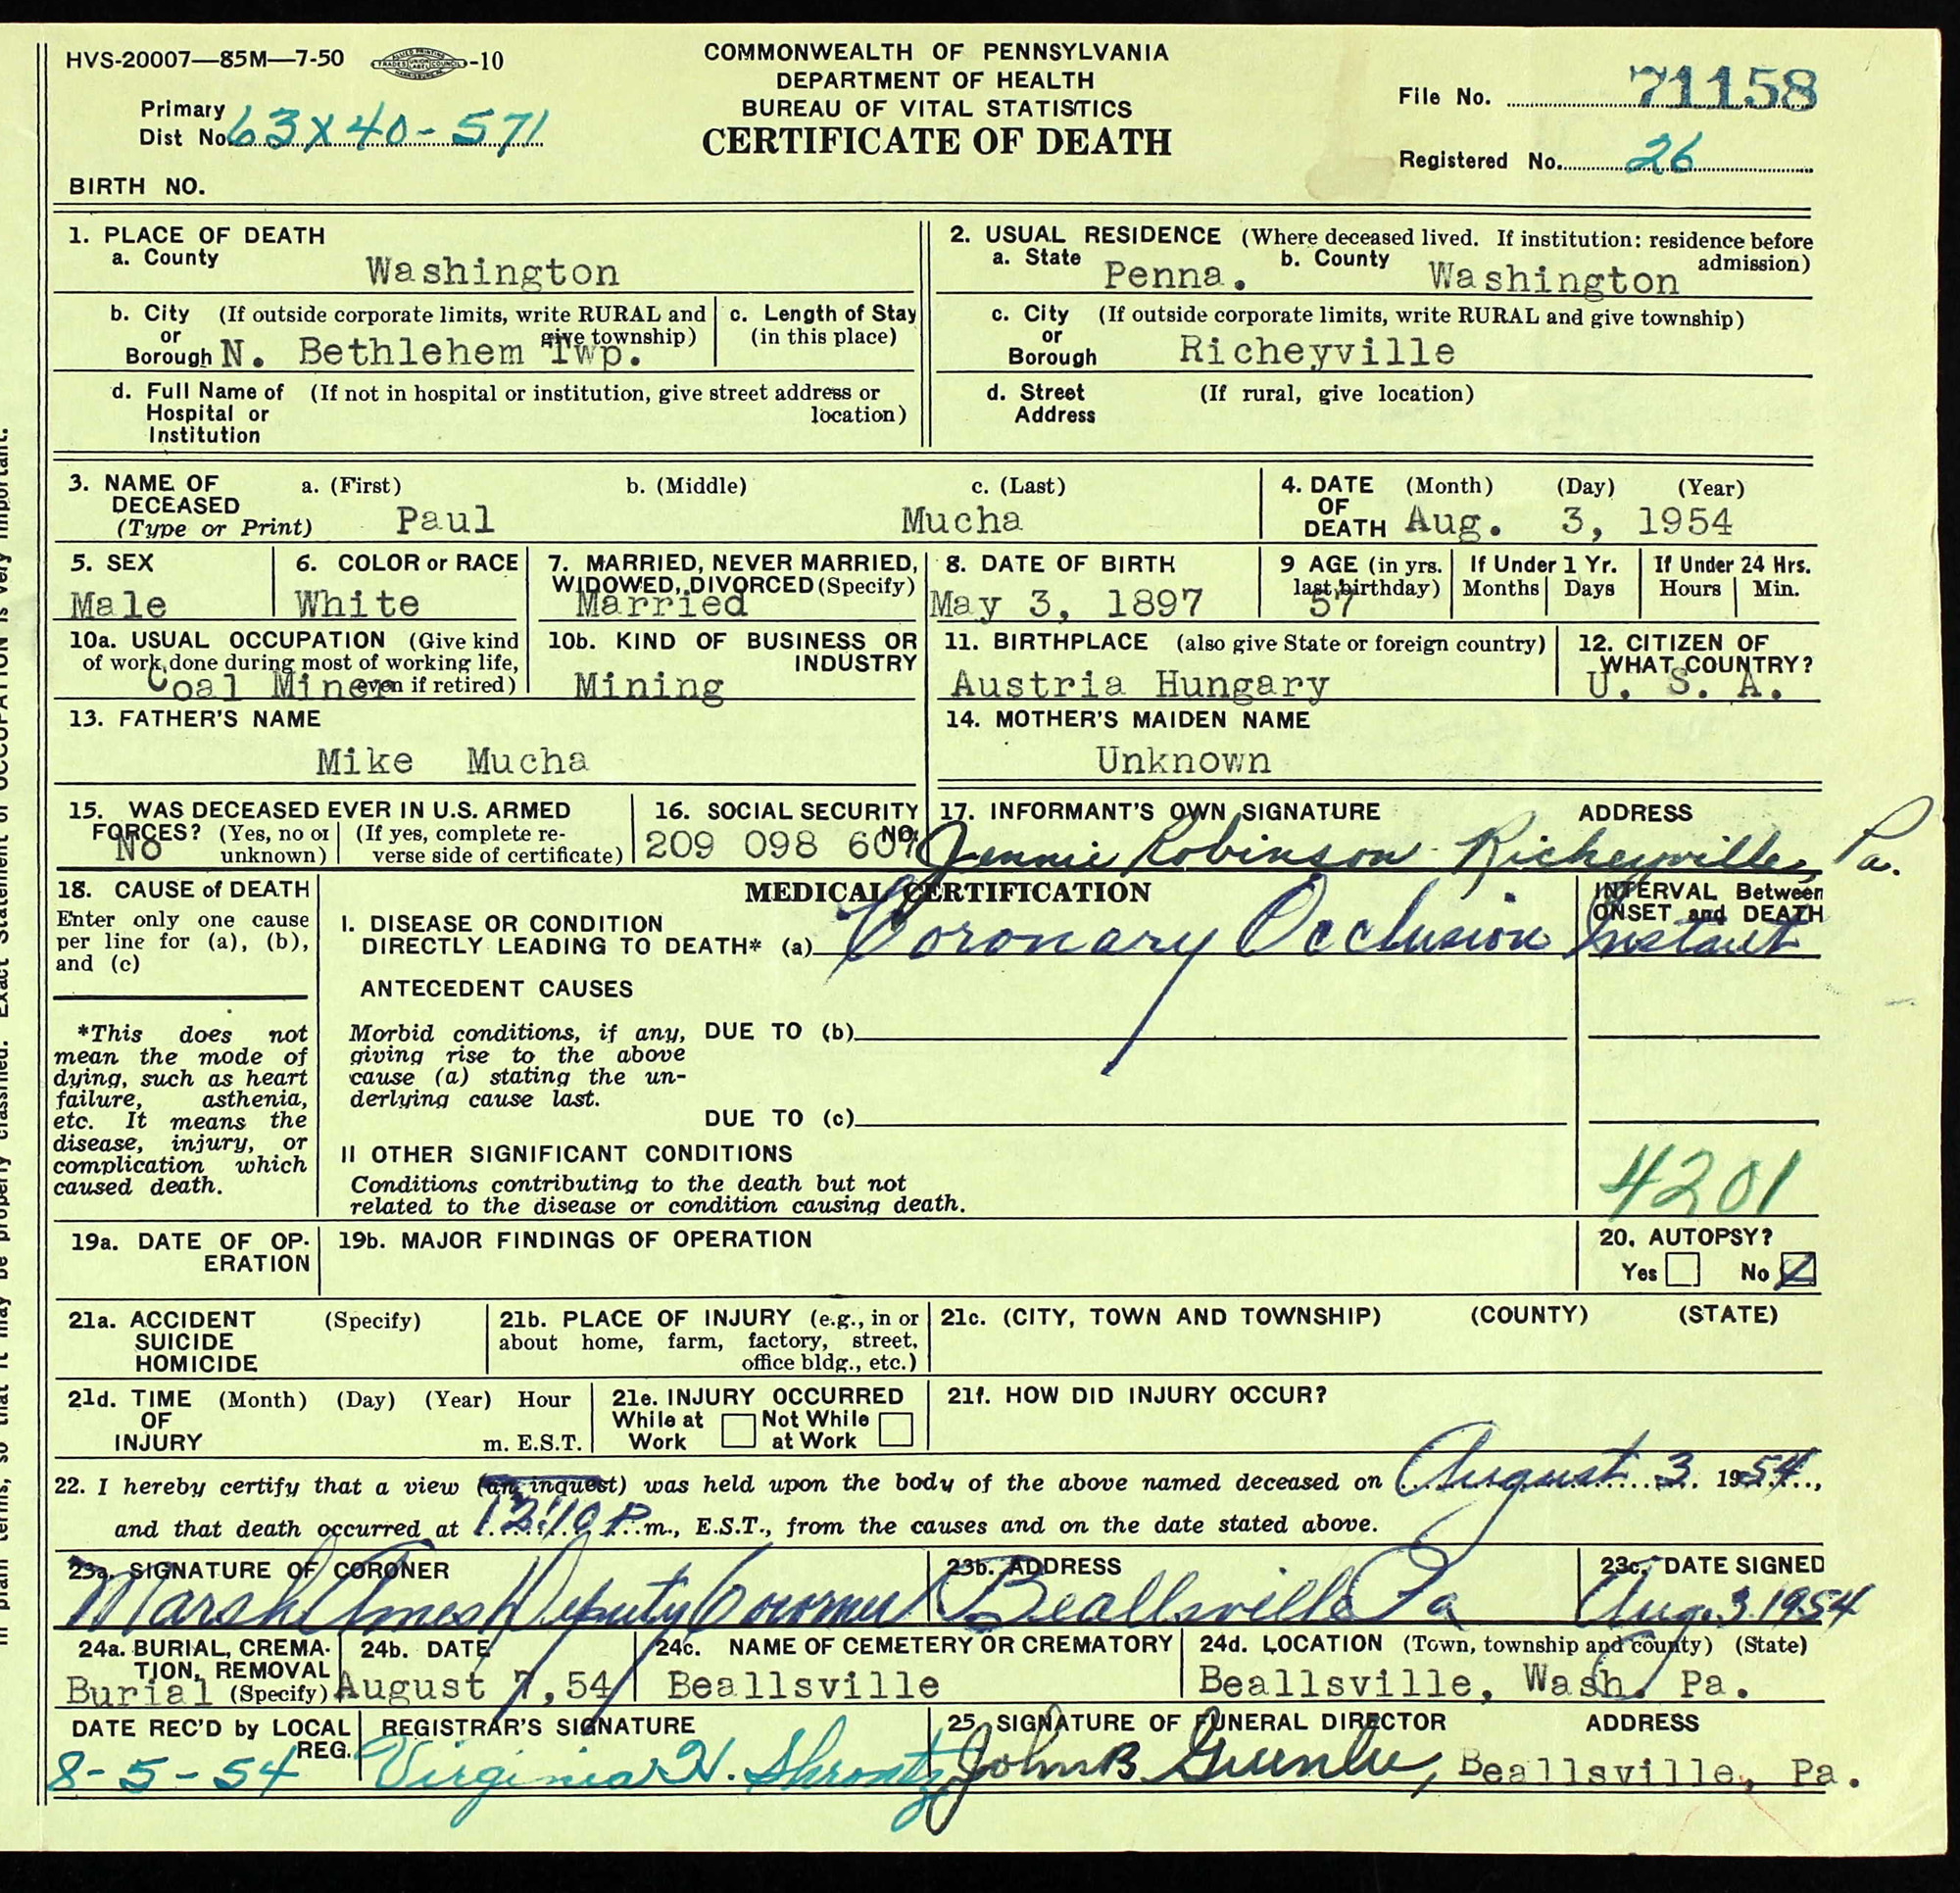 HVS-20007—85M—7-50 ALLIED PRINTING TRADES UNION LABEL COUNCIL -10
COMMONWEALTH OF PENNSYLVANIA
DEPARTMENT OF HEALTH
BUREAU OF VITAL STATISTICS
CERTIFICATE OF DEATH
File No. 71158
Primary Dist No. 63X40-571
Registered No. 26
BIRTH NO.
1. PLACE OF DEATH
a. County Washington
b. City or Borough (If outside corporate limits, write RURAL and give township) N. Bethlehem Twp.
c. Length of Stay (in this place)
d. Full Name of Hospital or Institution (If not in hospital or institution, give street address or location)
2. USUAL RESIDENCE (Where deceased lived. If institution: residence before admission)
a. State Penna. b. County Washington
c. City or Borough (If outside corporate limits, write RURAL and give township) Richeyville
d. Street Address (If rural, give location)
3. NAME OF DECEASED (Type or Print) a. (First) Paul b. (Middle) c. (Last) Mucha
4. DATE OF DEATH (Month) (Day) (Year) Aug. 3, 1954
5. SEX Male
6. COLOR or RACE White
7. MARRIED, NEVER MARRIED, WIDOWED, DIVORCED (Specify) Married
8. DATE OF BIRTH May 3, 1897
9 AGE (in yrs. last birthday) 57
If Under 1 Yr. Months Days
If Under 24 Hrs. Hours Min.
10a. USUAL OCCUPATION (Give kind of work done during most of working life, even if retired) Coal Miner
10b. KIND OF BUSINESS OR INDUSTRY Mining
11. BIRTHPLACE (also give State or foreign country) Austria Hungary
12. CITIZEN OF WHAT COUNTRY? U. S. A.
13. FATHER'S NAME Mike Mucha
14. MOTHER'S MAIDEN NAME Unknown
15. WAS DECEASED EVER IN U.S. ARMED FORCES? (Yes, no or unknown) No (If yes, complete reverse side of certificate)
16. SOCIAL SECURITY NO. 209 098 607
17. INFORMANT'S OWN SIGNATURE ADDRESS
Jennie Robinson Richeyville, Pa.
18. CAUSE of DEATH
Enter only one cause per line for (a), (b), and (c)
*This does not mean the mode of dying, such as heart failure, asthenia, etc. It means the disease, injury, or complication which caused death.
MEDICAL CERTIFICATION
I. DISEASE OR CONDITION DIRECTLY LEADING TO DEATH* (a) Coronary Occlusion
INTERVAL Between ONSET and DEATH Instant
ANTECEDENT CAUSES
Morbid conditions, if any, giving rise to the above cause (a) stating the underlying cause last.
DUE TO (b)
DUE TO (c)
II OTHER SIGNIFICANT CONDITIONS
Conditions contributing to the death but not related to the disease or condition causing death.
4201
19a. DATE OF OPERATION
19b. MAJOR FINDINGS OF OPERATION
20. AUTOPSY?
Yes No
21a. ACCIDENT SUICIDE HOMICIDE (Specify)
21b. PLACE OF INJURY (e.g., in or about home, farm, factory, street, office bldg., etc.)
21c. (CITY, TOWN AND TOWNSHIP) (COUNTY) (STATE)
21d. TIME OF INJURY (Month) (Day) (Year) Hour m. E.S.T.
21e. INJURY OCCURRED While at Work Not While at Work
21f. HOW DID INJURY OCCUR?
22. I hereby certify that a view (an inquest) was held upon the body of the above named deceased on August 3 1954,
and that death occurred at 12:10 P.m., E.S.T., from the causes and on the date stated above.
23a. SIGNATURE OF CORONER Marsh Ames Deputy Coroner
23b. ADDRESS Beallsville Pa
23c. DATE SIGNED Aug. 3. 1954
24a. BURIAL, CREMATION, REMOVAL (Specify) Burial
24b. DATE August 7, 54
24c. NAME OF CEMETERY OR CREMATORY Beallsville
24d. LOCATION (Town, township and county) (State) Beallsville, Wash. Pa.
DATE REC'D by LOCAL REG. 8-5-54
REGISTRAR'S SIGNATURE Virginia H. Shrontz
25. SIGNATURE OF FUNERAL DIRECTOR ADDRESS
John B Greenlee, Beallsville, Pa.